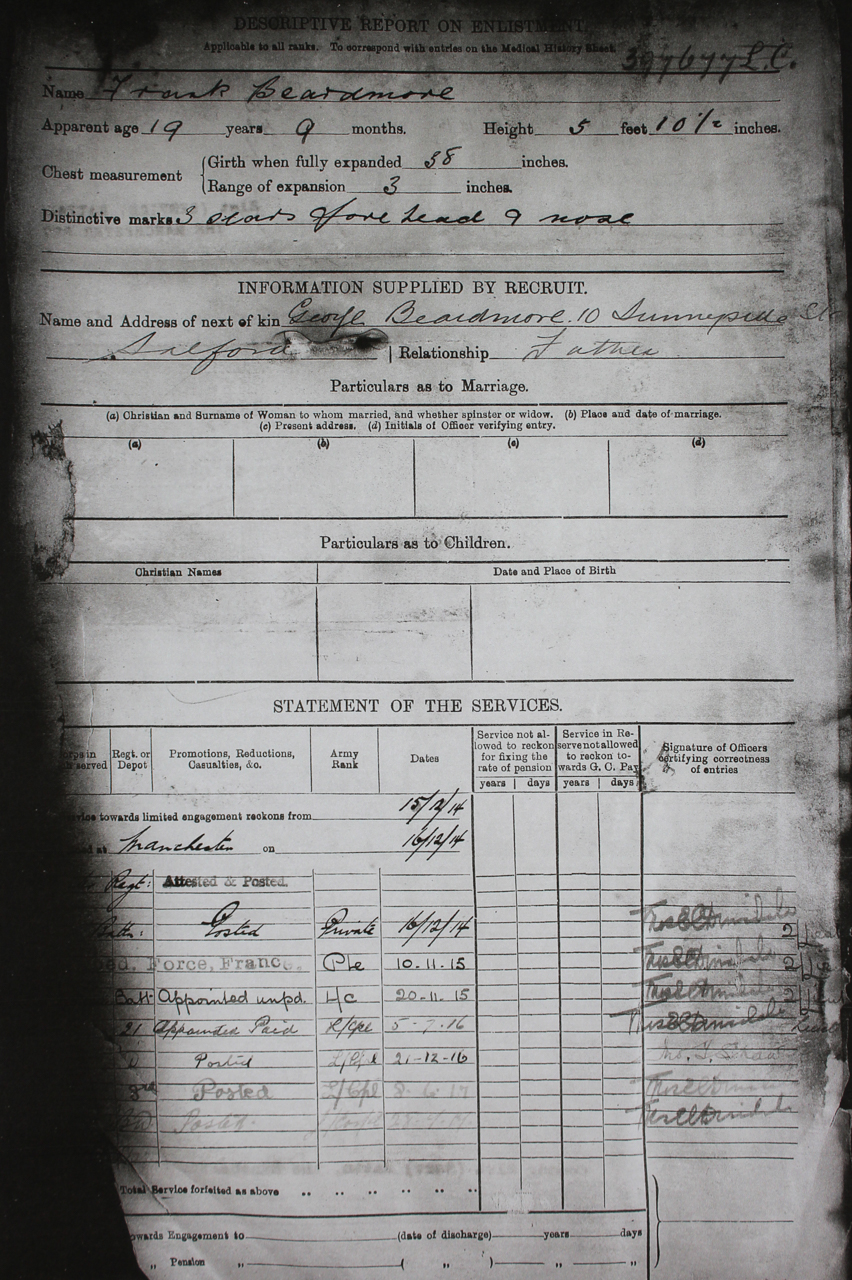 DESCRIPTIVE REPORT ON ENLISTMENT.
Applicable to all ranks. To correspond with entries on the Medical History Sheet.
397677 L.C.
Name Frank Beardmore
Apparent age 19 years 9 months. Height 5 feet 10 1/2 inches.
Chest measurement
Girth when fully expanded 38 inches.
Range of expansion 3 inches.
Distinctive marks 3 scars forehead & nose
INFORMATION SUPPLIED BY RECRUIT.
Name and Address of next of kin George Beardmore. 10 Sunnyside
Salford | Relationship Father
Particulars as to Marriage.
(a) Christian and Surname of Woman to whom married, and whether spinster or widow. (b) Place and date of marriage.
(c) Present address. (d) Initials of Officer verifying entry.
(a) (b) (c) (d)
Particulars as to Children.
Christian Names Date and Place of Birth
STATEMENT OF THE SERVICES.
served Regt. or Depot Promotions, Reductions, Casualties, &c. Army Rank Dates Service not allowed to reckon for fixing the rate of pension Service in Reserve not allowed to reckon towards G. C. Pay Signature of Officers certifying correctness of entries
years days years days
towards limited engagement reckons from 15/12/14
at Manchester on 16/12/14
Regt: Attested & Posted.
Batt: Posted Private 16/12/14
Force, France. Pte 10.11.15
Batt. Appointed unpd. L/c 20.11.15
21 Appointed Paid L/Cpl 5-7-16
Posted L/Cpl 21-12-16
Posted L/Cpl 8-6-17
Posted
Total Service forfeited as above .. .. .. .. .. ..
Engagement to (date of discharge) years days
„ Pension „ ( „ ) „ „